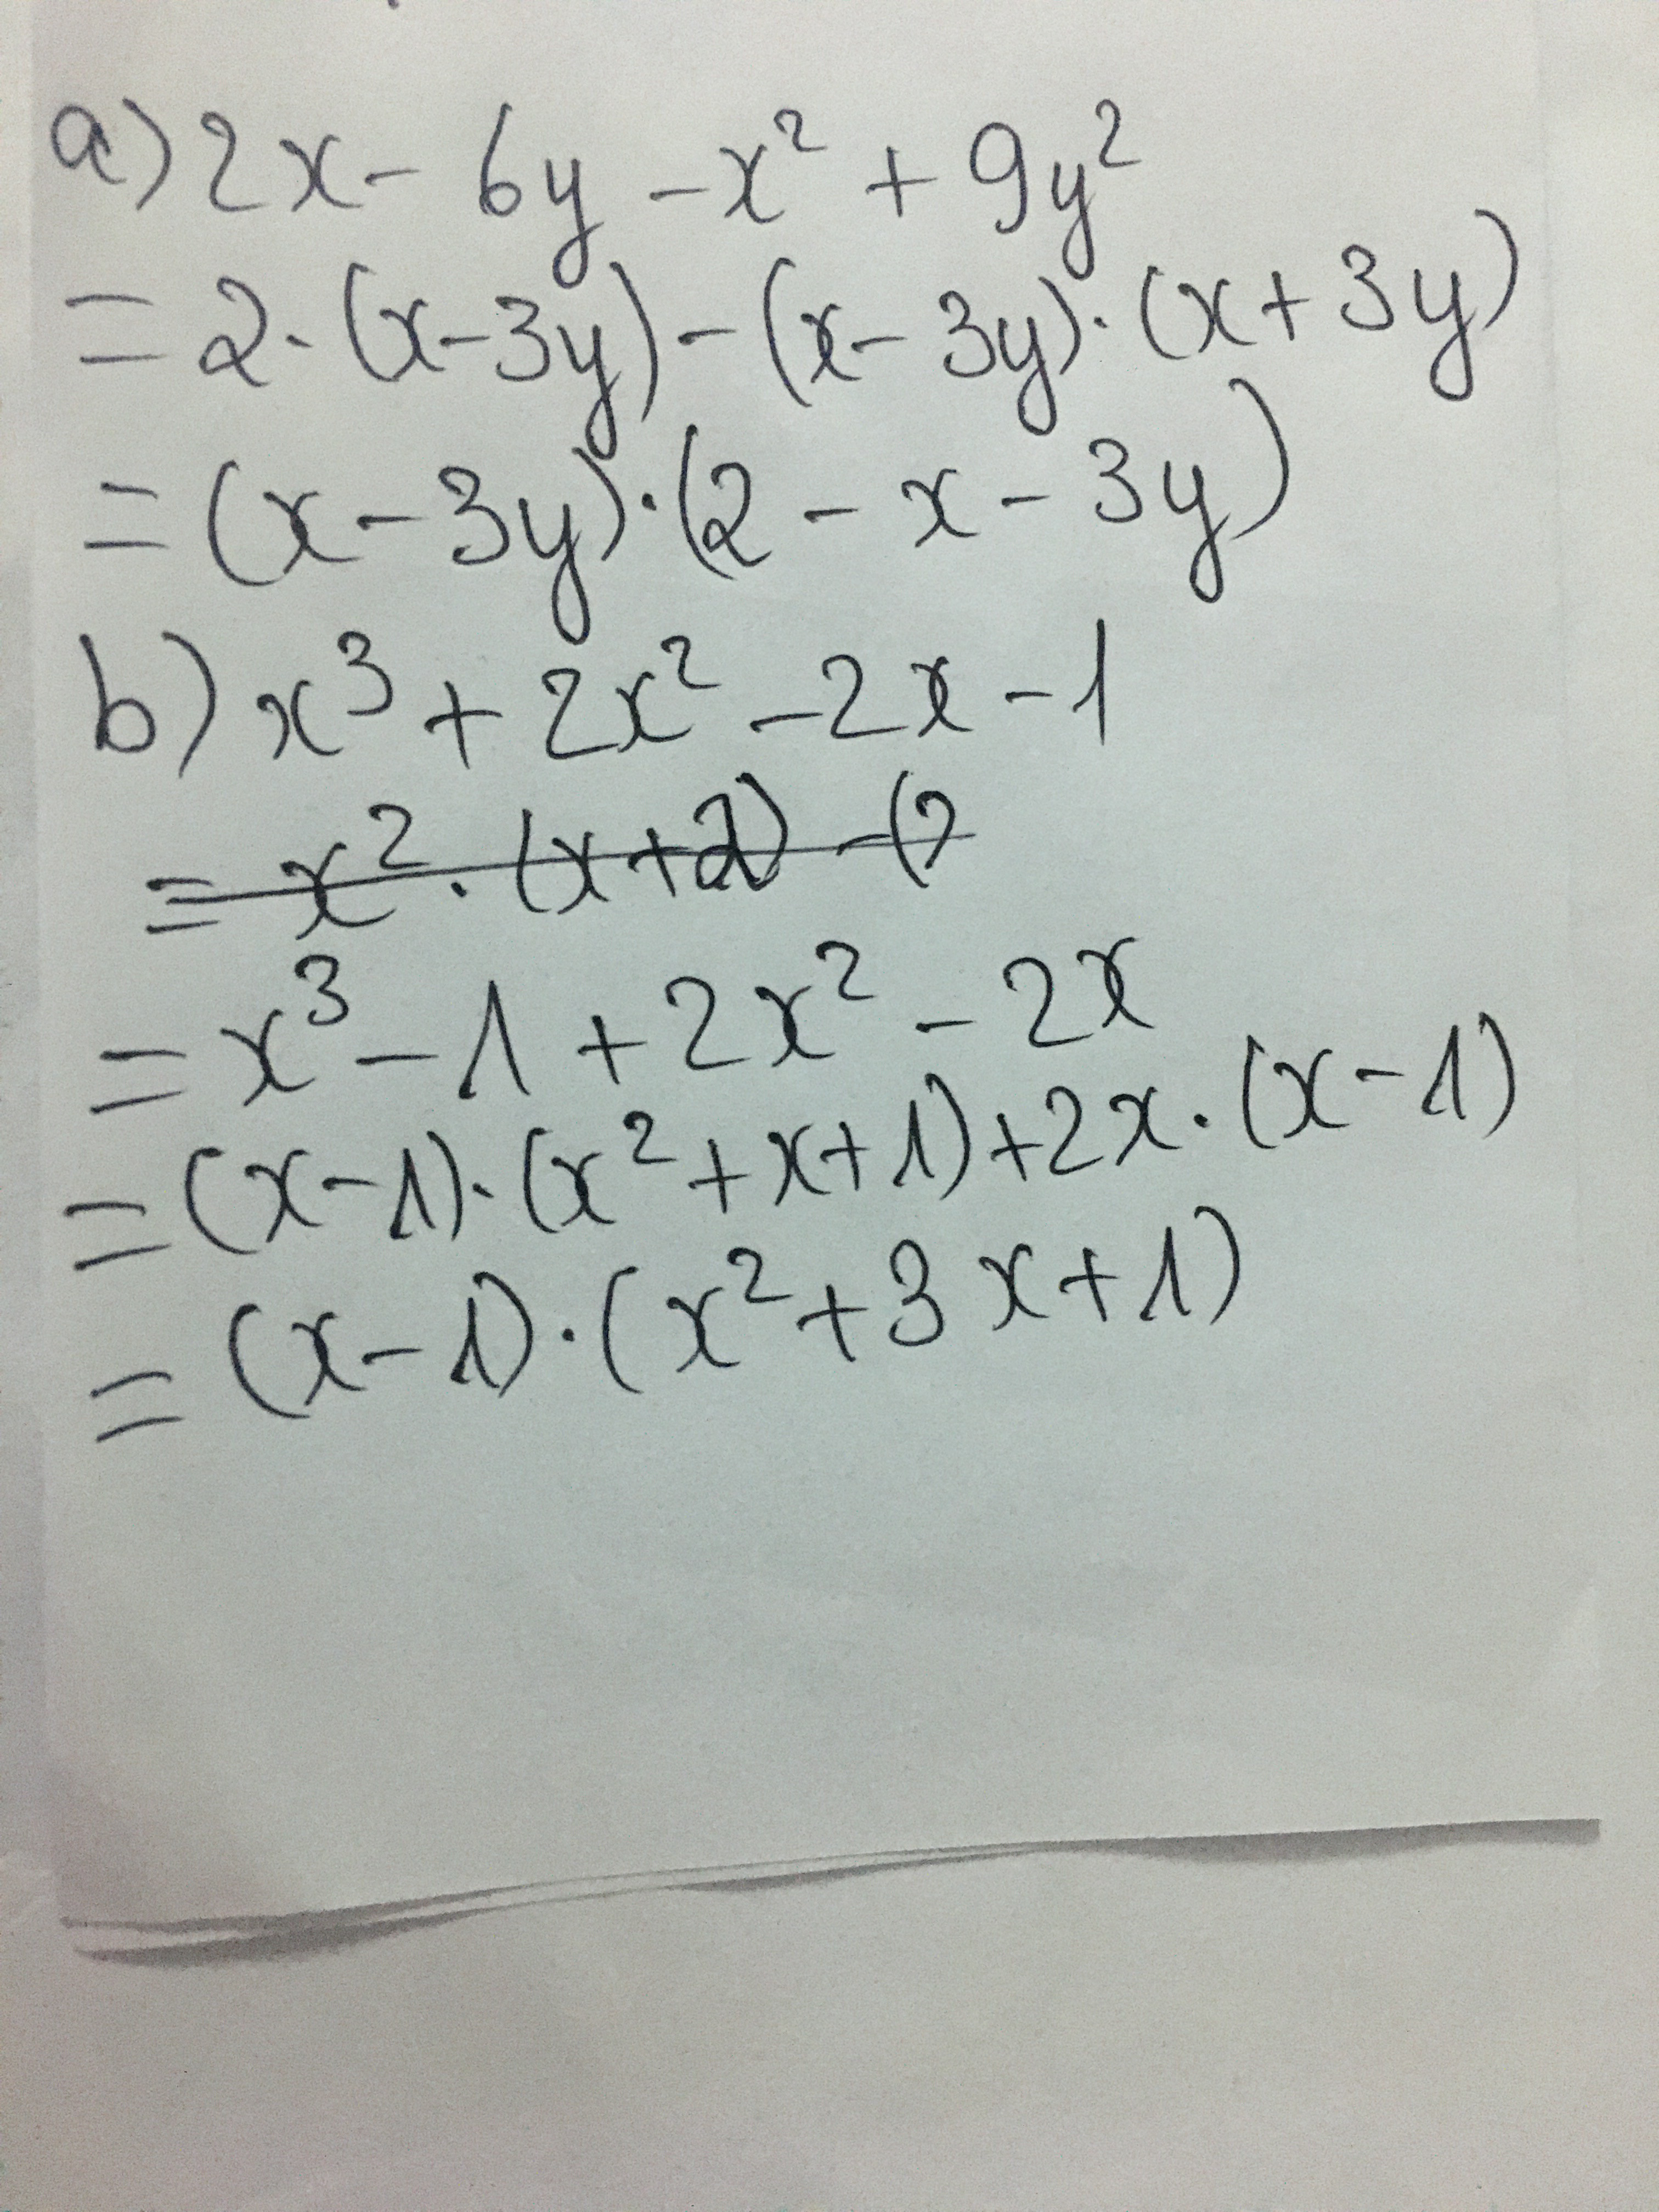 a) 2x - 6y - x² + 9y²
= 2·(x-3y) - (x-3y)·(x+3y)
= (x-3y)·(2 - x - 3y)
b) x³ + 2x² - 2x - 1
= x²·(x+2) - (2
= x³ - 1 + 2x² - 2x
= (x-1)·(x²+x+1)+2x·(x-1)
= (x-1)·(x²+3x+1)